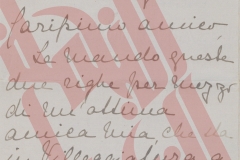 Carissimo amico
Le mando queste
due righe per mezzo
di un'ottima
amica mia, che da
in villeggiatura a